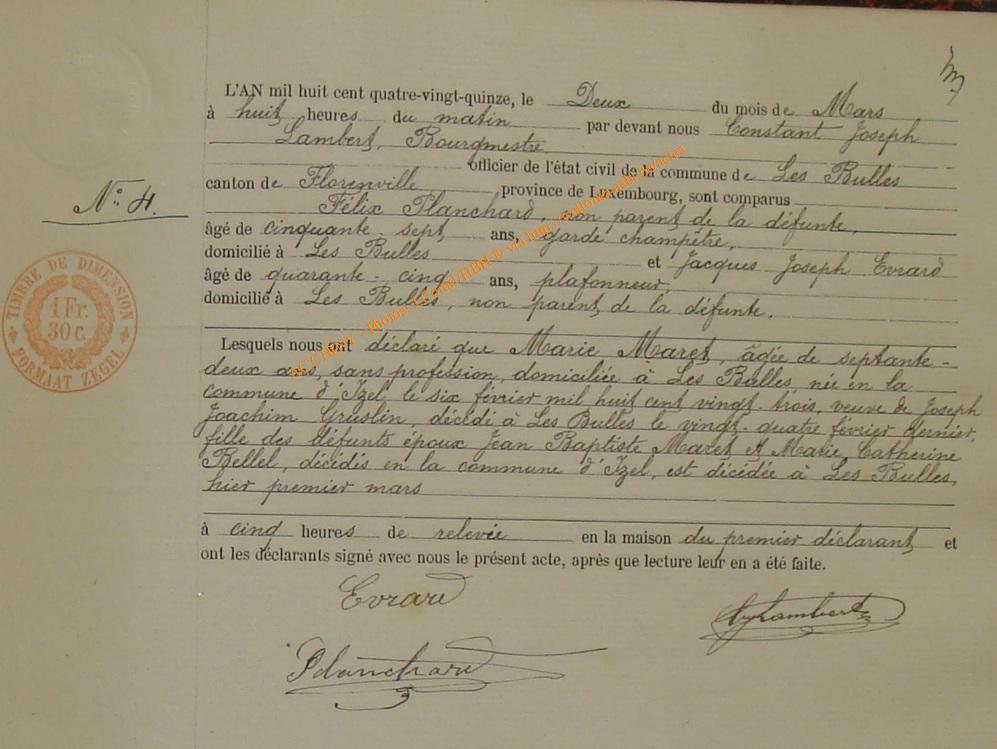 L'AN mil huit cent quatre-vingt-quinze, le Deux du mois de Mars
à huit heures du matin par devant nous Constant Joseph
Lambert, Bourgmestre
officier de l'état civil de la commune de Les Bulles
canton de Florenville province de Luxembourg, sont comparus
Félix Planchard, non parent de la défunte,
âgé de cinquante-sept ans, garde champêtre,
domicilié à Les Bulles et Jacques Joseph Evrard
âgé de quarante-cinq ans, plafonneur,
domicilié à Les Bulles, non parent de la défunte.
Lesquels nous ont déclaré que Marie Maret, âgée de septante-
deux ans, sans profession, domiciliée à Les Bulles, née en la
commune d'Izel, le six février mil huit cent vingt-trois, veuve de Joseph
Joachim Gruslin, décédé à Les Bulles le vingt-quatre février dernier,
fille des défunts époux Jean Baptiste Maret et Marie Catherine
Bellel, décidés en la commune d'Izel, est décidée à Les Bulles,
hier premier mars
à cinq heures de relevée en la maison du premier déclarant et
ont les déclarants signé avec nous le présent acte, après que lecture leur en a été faite.
Evrard
Lambert
Planchard
N° 4.
TIMBRE DE DIMENSION
1 Fr.
30 c.
FORMAAT ZEGEL